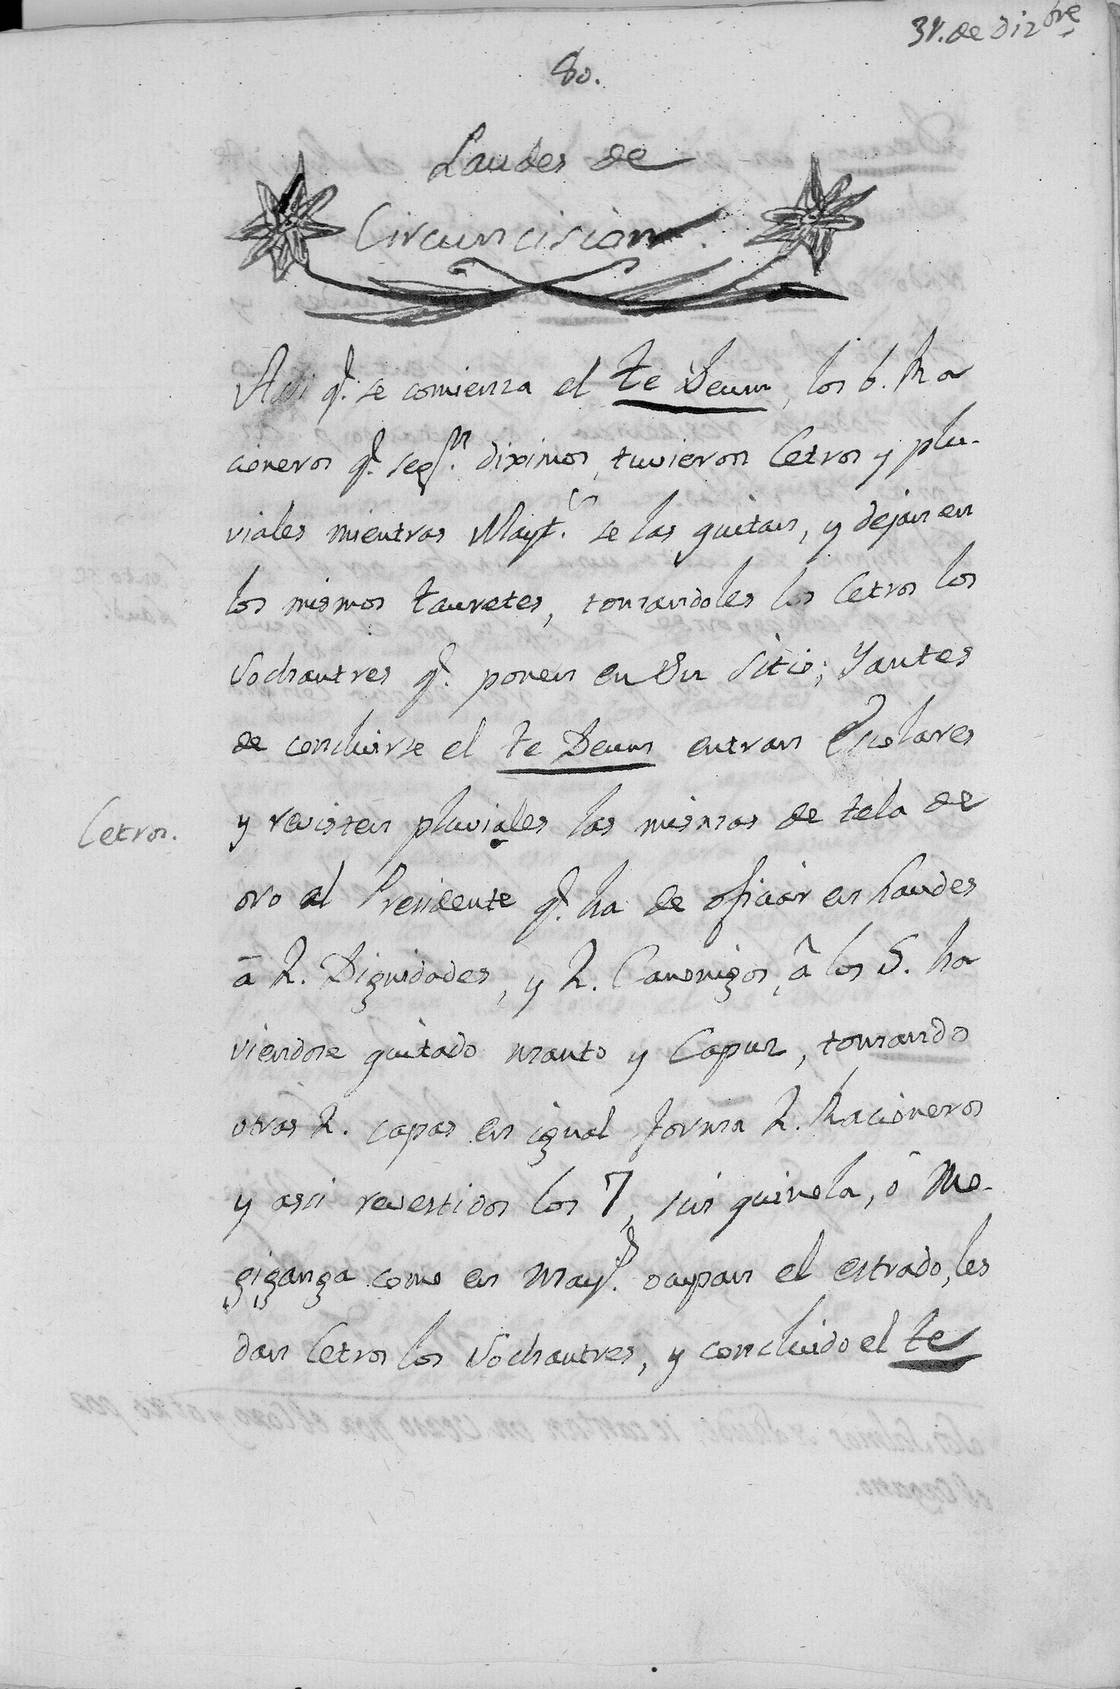 31. de Dizbre
80.
Laudes de
Circuncision.
Assi q.e se comienza el te Deum, los 6. Ra
cioneros q.e segn. diximos, tuvieron Cetros y plu-
viales mientras Mayt.s se las quitan, y dejan en
los mismos taуretes, tomandoles los Cetros los
Sochantres q.e ponen en Su Sitio; Y antes
de concluirse el te Deum entran Escolares
Cetros.
y revisten pluviales las mismas de tela de
oro al Presidente q.e ha de oficiar en Laudes
â 2. Dignidades, y 2. Canonigos, â los 5. ha
viendose quitado manto y Capuz, tomando
otras 2. capas en igual forma 2. Racioneros
y assi revestidos los 7, sin quirola, ô Mo-
giganga como en Mayt.s ocupan el estrado, les
dan Cetros los Sochantres, y concluido el te